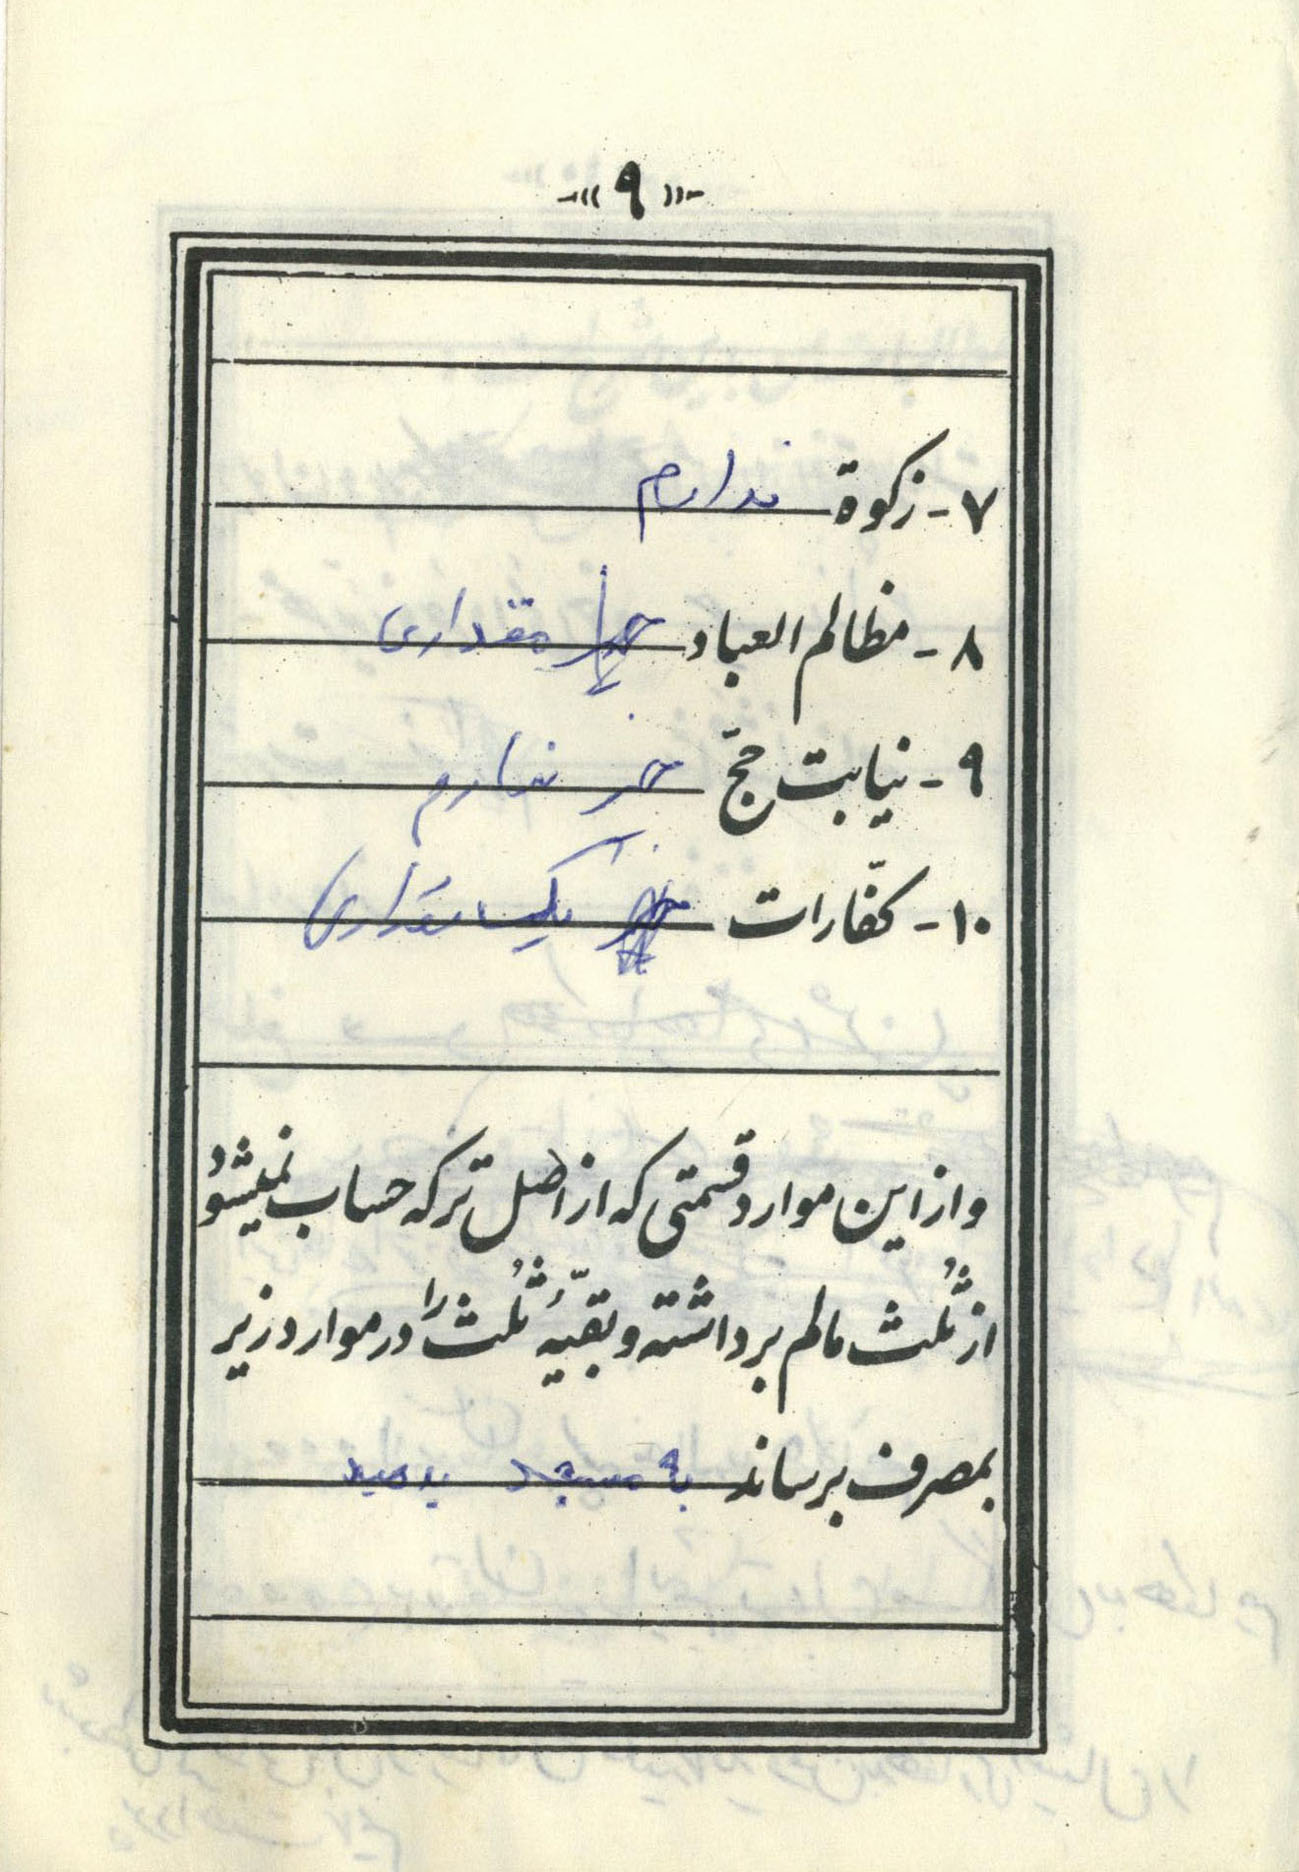 -«۹»-
۷- زکوة ندارم
۸- مظالم العباد مقداری
۹- نیابت حجّ خیر ندارم
۱۰- کفّارات یک مقداری
و از این موارد قسمتی که از اصل ترکه حساب نمیشود
از ثُلث مالم برداشته و بقیّهٔ ثُلث را در موارد زیر
بمصرف برساند به مسجد بدهید